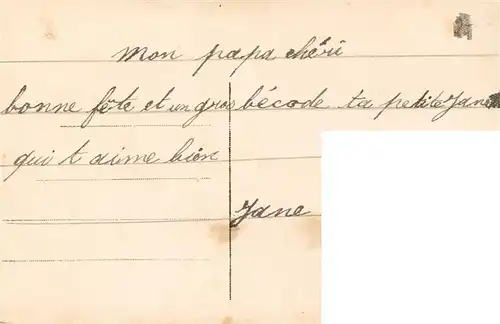 mon papa chéri
bonne fête et un gros bécode ta petite Jane
qui t aime bien
Jane